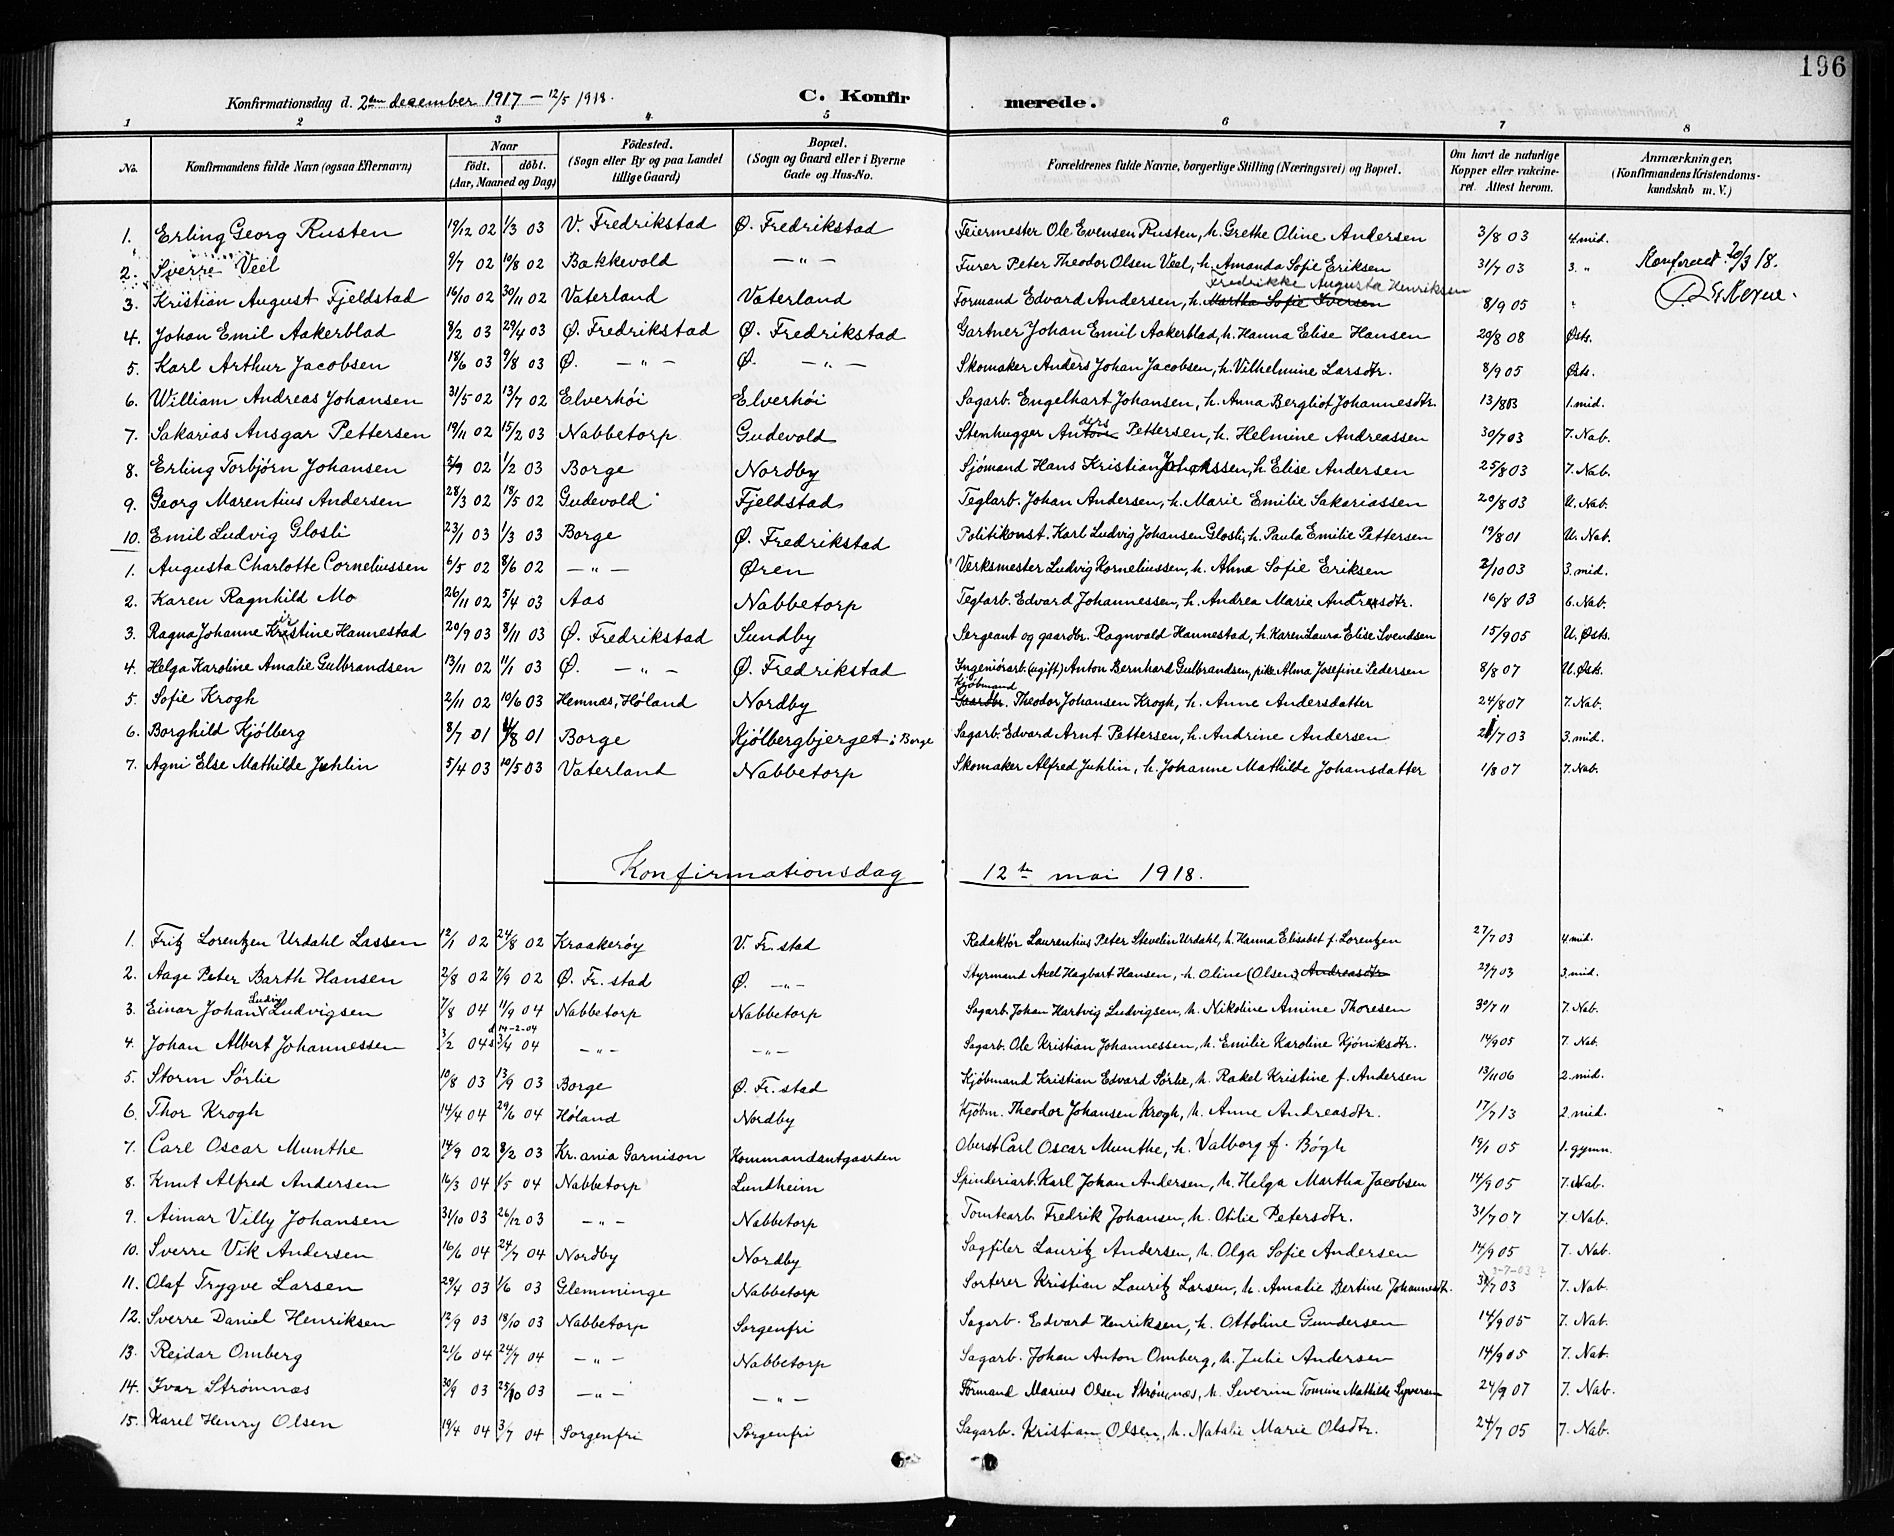 196
Konfirmationsdag d. 2den desember 1917 – 12/5 1918. C. Konfirmerede.
1 2 3 4. 5 6 7 8
No. Konfirmandens fulde Navn (ogsaa Efternavn) Naar født. døbt. (Aar, Maaned og Dag) Fødested. (Sogn eller By og paa Landet tillige Gaard) Bopæl. (Sogn og Gaard eller i Byerne Gade og Hus-No. Forældrenes fulde Navne, borgerlige Stilling (Næringsvei) og Bopæl. Om havt de naturlige Kopper eller vakcineret. Attest herom. Anmærkninger. (Konfirmandens Kristendomskundskab m. V.)
1. Erling Georg Rusten 19/12 02 1/3 03 V. Fredrikstad Ø. Fredrikstad Feiermester Ole Evensen Rusten, h. Grethe Oline Andersen 3/8 03 4. mid.
2. Sverre Veel 9/7 02 10/8 02 Bakkevold — „ — Furer Peter Theodor Olsen Veel, h. Amanda Sofie Eriksen 31/7 03 3. „ Konfereret 20/3 18.
Fredrikke Augusta Henriksen
3. Kristian August Fjeldstad 16/10 02 30/11 02 Vaterland Vaterland Formand Edvard Andersen, h. Martha Sofie Iversen 8/9 05 „
4. Johan Emil Aakerblad 8/2 03 29/4 03 Ø. Fredrikstad Ø. Fredrikstad Gartner Johan Emil Aakerblad, h. Hanna Elise Hansen 20/8 08 Østs.
5. Karl Arthur Jacobsen 18/6 03 9/8 03 Ø. — „ — Ø. — „ — Skomaker Anders Johan Jacobsen, h. Vilhelmine Larsdtr. 8/9 05 Østs.
6. William Andreas Johansen 31/5 02 13/7 02 Elverhöi Elverhöi Sagarb. Engelhart Johansen, h. Anna Bergliot Johannesdtr. 13/8 03 1. mid.
7. Sakarias Ansgar Pettersen 19/11 02 15/2 03 Nabbetorp Gudevold Stenhugger Anders Pettersen, h. Helmine Andreassen 30/7 03 7. Nab.
8. Erling Torbjörn Johansen 2/9 02 1/2 03 Borge Nordby Sjömand Hans Kristian Johanssen, h. Elise Andersen 25/8 03 7. Nab.
9. Georg Marentius Andersen 28/3 02 18/5 02 Gudevold Fjeldstad Teglarb. Johan Andersen, h. Marie Emilie Sakariassen 20/8 03 U. Nab.
10. Emil Ludvig Glosli 23/1 03 1/3 03 Borge Ø. Fredrikstad Politikonst. Karl Ludvig Johansen Glosli, h. Paula Emilie Pettersen 19/8 01 U. Nab.
1. Augusta Charlotte Corneliussen 6/5 02 8/6 02 — „ — Øren Verksmester Ludvig Korneliussen, h. Alma Sofie Eriksen 2/10 03 3. mid.
2. Karen Ragnhild Mo 26/11 02 5/4 03 Aas Nabbetorp Teglarb. Edvard Johannessen, h. Andrea Marie Andreasdtr. 16/8 03 6. Nab.
3. Ragna Johanne Kristine Hannestad 20/9 03 8/11 03 Ø. Fredrikstad Sundby Sergeant og gaardbr. Ragnvald Hannestad, h. Karen Laura Elise Svendsen 15/9 05 U. Østs.
4. Helga Karoline Amalie Gulbrandsen 13/11 02 11/1 03 Ø. — „ — Ø. Fredrikstad Ingeniörarb. (ugift) Anton Bernhard Gulbrandsen, pike Alma Josefine Pedersen 8/8 07 U. Østs.
Kjöbmand
5. Sofie Krogh 2/11 02 10/6 03 Hemnæs, Höland Nordby Gaardbr. Theodor Johansen Krogh, h. Anne Andersdatter 24/8 07 7. Nab.
6. Borghild Kjölberg 8/7 01 /8 01 Borge Kjölbergbjerget i Borge Sagarb. Edvard Arnt Pettersen, h. Andrine Andersen 21/7 03 3. mid.
7. Agni Else Mathilde Juhlin 5/4 03 10/5 03 Vaterland Nabbetorp Skomaker Alfred Juhlin, h. Johanne Mathilde Johansdatter 1/8 07 7. Nab.
Konfirmationsdag 12te mai 1918.
1. Fritz Lorentzen Urdahl Lassen 12/1 02 24/8 02 Kraakeröy V. Fr.stad Redaktör Laurentius Peter Stevelin Urdahl, h. Hanna Elisabet f. Lorentzen 27/7 03 4. mid.
2. Aage Peter Barth Hansen 2/8 02 7/9 02 Ø. Fr.stad Ø. — „ — Styrmand Axel Hagbart Hansen, h. Oline (Olsen) Andreasdtr 29/7 03 3. mid.
3. Einar Johan Ludvig Ludvigsen 7/8 04 11/9 04 Nabbetorp Nabbetorp Sagarb. Johan Hartvig Ludvigsen, h. Nikoline Amine Thoresen 30/7 11 7. Nab.
d 14-2-04
4. Johan Albert Johannessen 3/2 04 s 3/4 04 — „ — — „ — Sagarb. Ole Kristian Johannessen, h. Emilie Karoline Kjöniksdtr. 14/9 05 7. Nab.
5. Storm Sörlie 10/8 03 13/9 03 Borge Ø. Fr.stad Kjöbmand Kristian Edvard Sörlie, h. Rakel Kristine f. Andersen 13/11 06 2. mid.
6. Thor Krogh 14/4 04 29/6 04 Höland Nordby Kjöbm. Theodor Johansen Krogh, h. Anne Andreasdtr. 17/7 13 2. mid.
7. Carl Oscar Munthe 14/9 02 8/2 03 Kr.ania Garnison Kommandantgaarden Oberst Carl Oscar Munthe, h. Valborg f. Bøgh 19/1 05 1. gymn.
8. Knut Alfred Andersen 16/3 04 1/5 04 Nabbetorp Lundheim Spinderiarb. Karl Johan Andersen, h. Helga Martha Jacobsen 14/9 05 7. Nab.
9. Aimar Villy Johansen 31/10 03 26/12 03 — „ — Nabbetorp Tomtearb. Fredrik Johansen, h. Otilie Petersdtr. 31/7 07 7. Nab.
10. Sverre Vik Andersen 16/6 04 24/7 04 Nordby Nordby Sagfiler Lauritz Andersen, h. Olga Sofie Andersen 14/9 05 7. Nab.
11. Olaf Trygve Larsen 29/4 03 1/6 03 Glemminge Nabbetorp Sorterer Kristian Lauritz Larsen, h. Amalie Bertine Johannesdtr. 30/7 03 7. Nab.
12. Sverre Daniel Henriksen 12/9 03 18/10 03 Nabbetorp Sorgenfri Sagarb. Edvard Henriksen, h. Ottoline Gundersen 14/9 05 7. Nab.
13. Reidar Omberg 21/6 04 24/7 04 — „ — Nabbetorp Sagarb. Johan Anton Omberg, h. Julie Andersen 14/9 05 7. Nab.
14. Ivar Strømnæs 30/9 03 25/10 03 — „ — — „ — Formand Marius Olsen Strømnæs, h. Severine Tomine Mathilde Syversen 24/9 07 7. Nab.
15. Karel Henry Olsen 19/4 04 3/7 04 Sorgenfri Sorgenfri Sagarb. Kristian Olsen, h. Natalie Marie Olsdtr. 24/7 05 7. Nab.